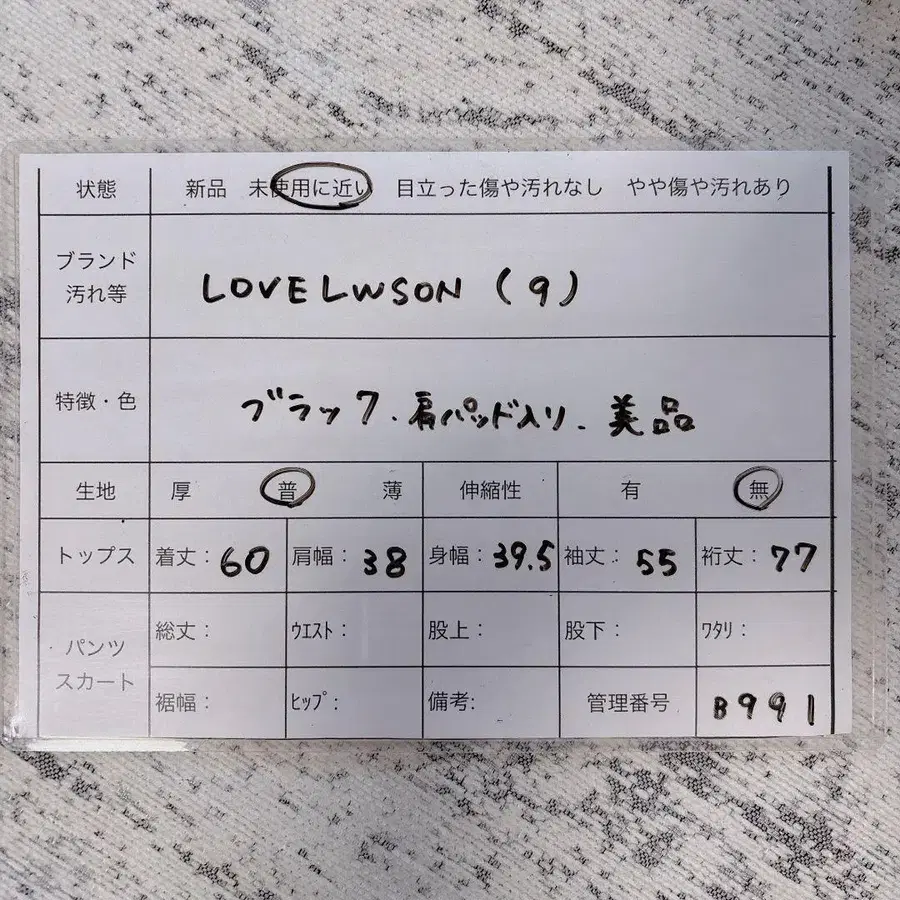 状態 新品 未使用に近い 目立った傷や汚れなし やや傷や汚れあり
ブランド
汚れ等
LOVELWSON (9)
特徴・色 ブラック.肩パッド入り.美品
生地 厚 普 薄 伸縮性 有 無
トップス 着丈:60 肩幅:38 身幅:39.5 袖丈:55 裄丈:77
パンツ
スカート
総丈: ウエスト: 股上: 股下: ワタリ:
裾幅: ヒップ: 備考: 管理番号 B991